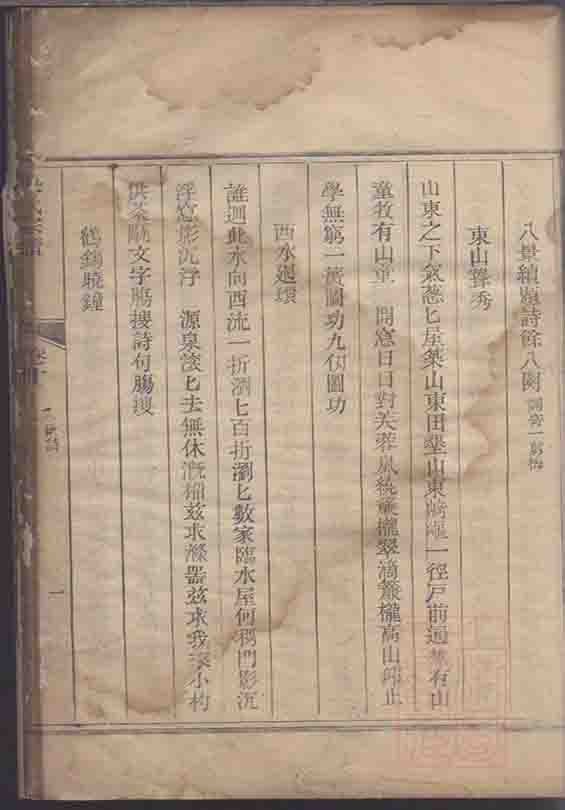 八景續題詩餘八闋調寄一剪梅
東山聳秀
山東之下氣蔥匕屋築山東田墾山東崎嶇一徑戸前通樵有山
童牧有山童　開窓日日對芙蓉嵐繞簾櫳翠滴簾櫳高山仰止
學無窮一簣圖功九仞圖功
西水迴環
誰迴此水向西流一折瀏匕百折瀏匕數家臨水屋何稠門影沉
浮窓影沉浮　源泉滾匕去無休漑稲茲求滌器茲求我來小杓
供茶甌文字腸搜詩句腸搜
鶴錫曉鐘
一